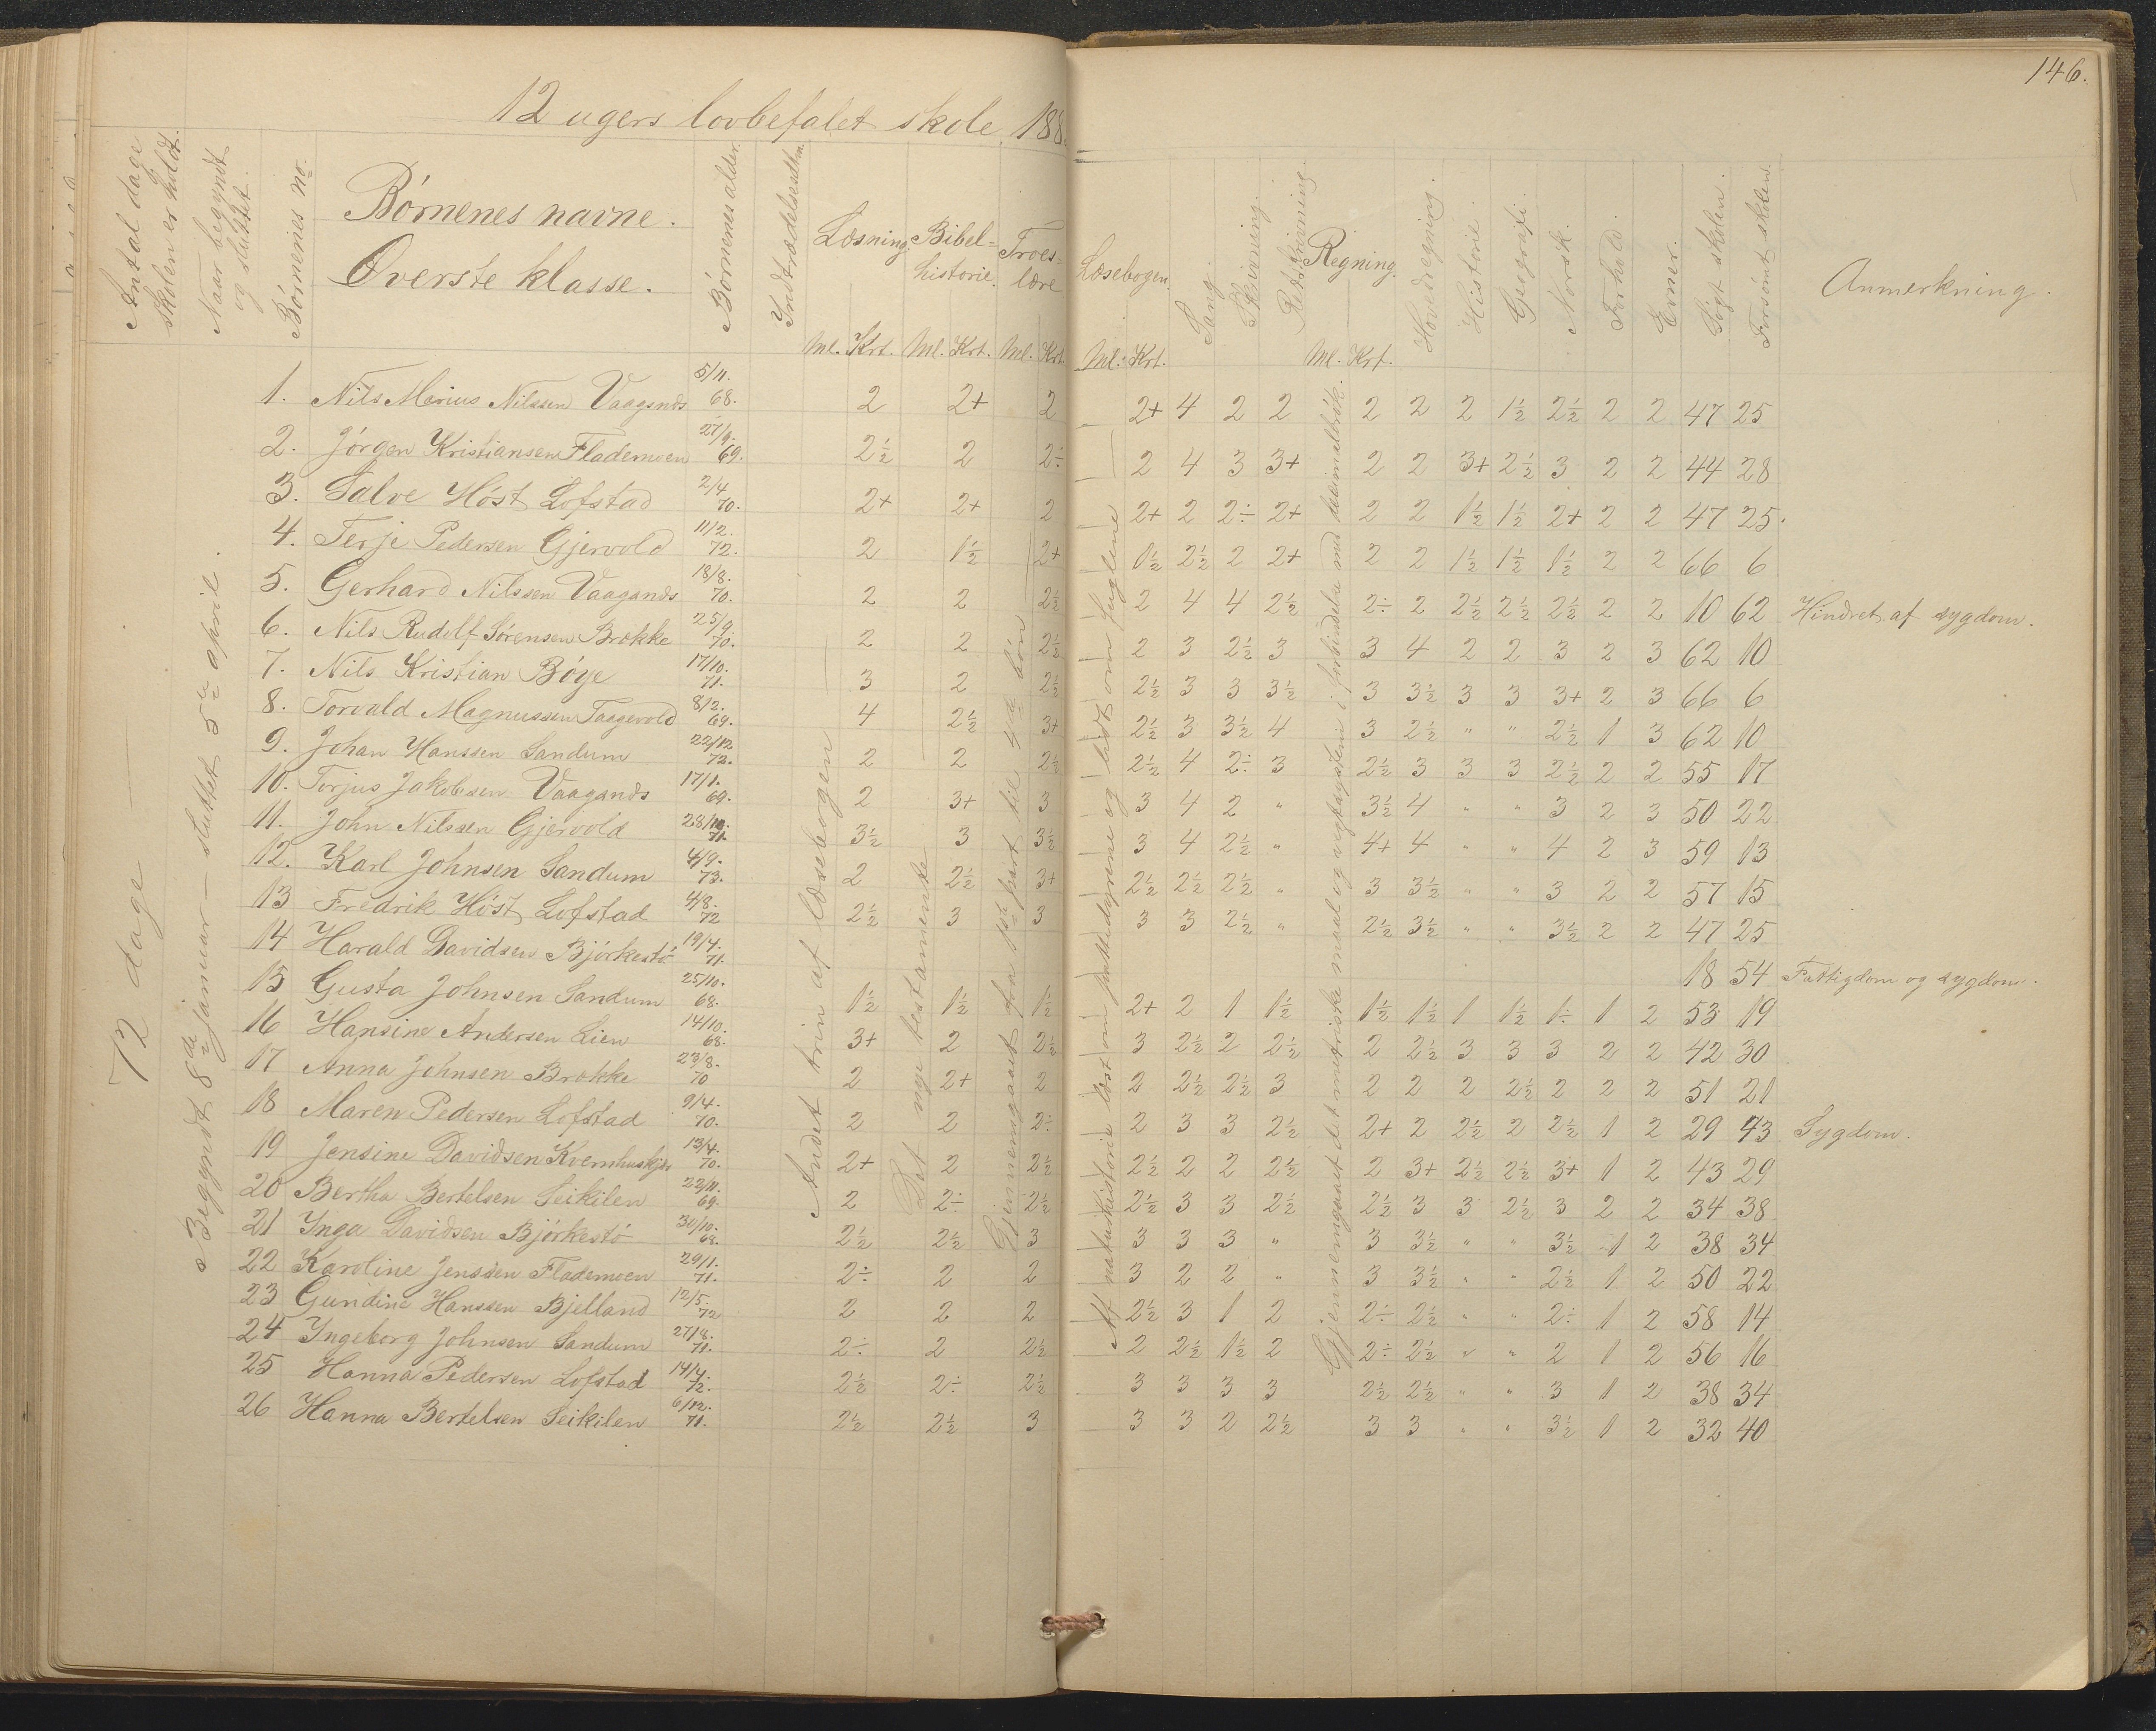 146.
12 ugers lovbefalet skole 188
Antal dage skolen er holdt.
Naar begyndt og sluttet.
Børnenes no.
Børnenes navne.
Øverste klasse.
Børnenes alder.
Læsning Ml. Krt.
Bibelhistorie. Ml. Krt.
Troeslære Ml. Krt.
Læsebogen. Ml. Krt.
Sang.
Skrivning.
Retskrivning.
Regning. Ml. Krt.
Hovedregning.
Historie.
Geografi.
Norsk.
Forhold.
Evner.
Søgt skolen.
Forsømt skolen.
Anmerkning.
72 dage
Begyndt 8de januar – sluttet 5te april.
Andet trin af læsebogen
Det nye testamente
Gjennemgaaet fra 1ste part til 4de bøn
Af naturhistorie læst om pattedyrene og lidt om fuglene
Gjennemgaaet det metriske maal og vegtsystem i forbindelse med decimalbrøk.
1. Nils Marius Nilssen Vaagsnes 5/11. 68. 2 2+ 2 2+ 4 2 2 2 2 2 1½ 2½ 2 2 47 25
2. Jörgen Kristiansen Flademoen 27/9. 69. 2½ 2 2÷ 2 4 3 3+ 2 2 3+ 2½ 3 2 2 44 28
3. Salve Höst Lofstad 2/4 70. 2+ 2+ 2 2+ 2 2÷ 2+ 2 2 1½ 1½ 2+ 2 2 47 25.
4. Terje Pedersen Gjervold 11/2. 72. 2 1½ 2+ 1½ 2½ 2 2+ 2 2 1½ 1½ 1½ 2 2 66 6
5. Gerhard Nilssen Vaagsnes 18/8. 70. 2 2 2½ 2 4 4 2½ 2÷ 2 2½ 2½ 2½ 2 2 10 62 Hindret af sygdom.
6. Nils Rudolf Sörensen Brokke 25/9 70. 2 2 2½ 2 3 2½ 3 3 4 2 2 3 2 3 62 10
7. Nils Kristian Böye 17/10. 71. 3 2 2½ 2½ 3 3 3½ 3 3½ 3 3 3+ 2 3 66 6
8. Torvald Magnussen Taagevold 8/2. 69. 4 2½ 3+ 2½ 3 3½ 4 3 2½ " " 2½ 1 3 62 10
9. Johan Hanssen Sandum 22/12 72. 2 2 2½ 2½ 4 2÷ 3 2½ 3 3 3 2½ 2 2 55 17
10. Torjus Jakobsen Vaagsnes 17/1. 69. 2 3+ 3 3 4 2 " 3½ 4 " " 3 2 3 50 22
11. John Nilssen Gjervold 28/10. 71. 3½ 3 3½ 3 4 2½ " 4+ 4 " " 4 2 3 59 13
12. Karl Johnsen Sandum 4/9. 73. 2 2½ 3+ 2½ 2½ 2½ " 3 3½ " " 3 2 2 57 15
13 Fredrik Höst Lofstad 4/8. 72 2½ 3 3 3 3 2½ " 2½ 3½ " " 3½ 2 2 47 25
14 Harald Davidsen Björkestö 19/4. 71. 18 54 Fattigdom og sygdom.
15 Gusta Johnsen Sandum 25/10. 68. 1½ 1½ 1½ 2+ 2 1 1½ 1½ 1½ 1 1½ 1÷ 1 2 53 19
16 Hansine Andersen Lien 14/10. 68. 3+ 2 2½ 3 2½ 2 2½ 2 2½ 3 3 3 2 2 42 30
17 Anna Johnsen Brokke 23/8. 70 2 2+ 2 2 2½ 2½ 3 2 2 2 2½ 2 2 2 51 21
18 Maren Pedersen Lofstad 9/4. 70. 2 2 2÷ 2 3 3 2½ 2+ 2 2½ 2 2½ 1 2 29 43 Sygdom.
19 Jensine Davidsen Kvernhuskjær 13/4. 70. 2+ 2 2½ 2½ 2 2 2½ 2 3+ 2½ 2½ 3+ 1 2 43 29
20 Bertha Bertelsen Seikilen 22/11. 69. 2 2÷ 2½ 2½ 3 3 2½ 2½ 3 3 2½ 3 2 2 34 38
21 Ynga Davidsen Björkestö 30/10. 68. 2½ 2½ 3 3 3 3 " 3 3½ " " 3½ 1 2 38 34
22 Karoline Jenssen Flademoen 29/1. 71. 2÷ 2 2 3 2 2 " 3 3½ " " 2½ 1 2 50 22
23 Gundine Hanssen Bjelland 12/5. 72 2 2 2 2½ 3 1 2 2÷ 2½ " " 2÷ 1 2 58 14
24 Yngeborg Johnsen Sandum 27/8. 71. 2÷ 2 2½ 2 2½ 1½ 2 2÷ 2½ " " 2 1 2 56 16
25 Hanna Pedersen Lofstad 14/4. 72. 2½ 2÷ 2½ 3 3 3 3 2½ 2½ " " 3 1 2 38 34
26 Hanna Bertelsen Seikilen 6/12. 71. 2½ 2½ 3 3 3 2 2½ 3 3 " " 3½ 1 2 32 40